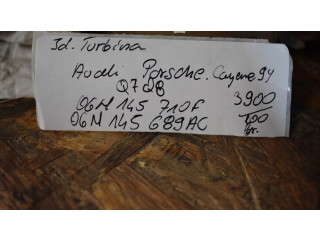 3d. Turbina
Audi Porsche. Cayene 94
Q7 Q8
06M 145 710F 3900
06M 145 689AC 100
gr.